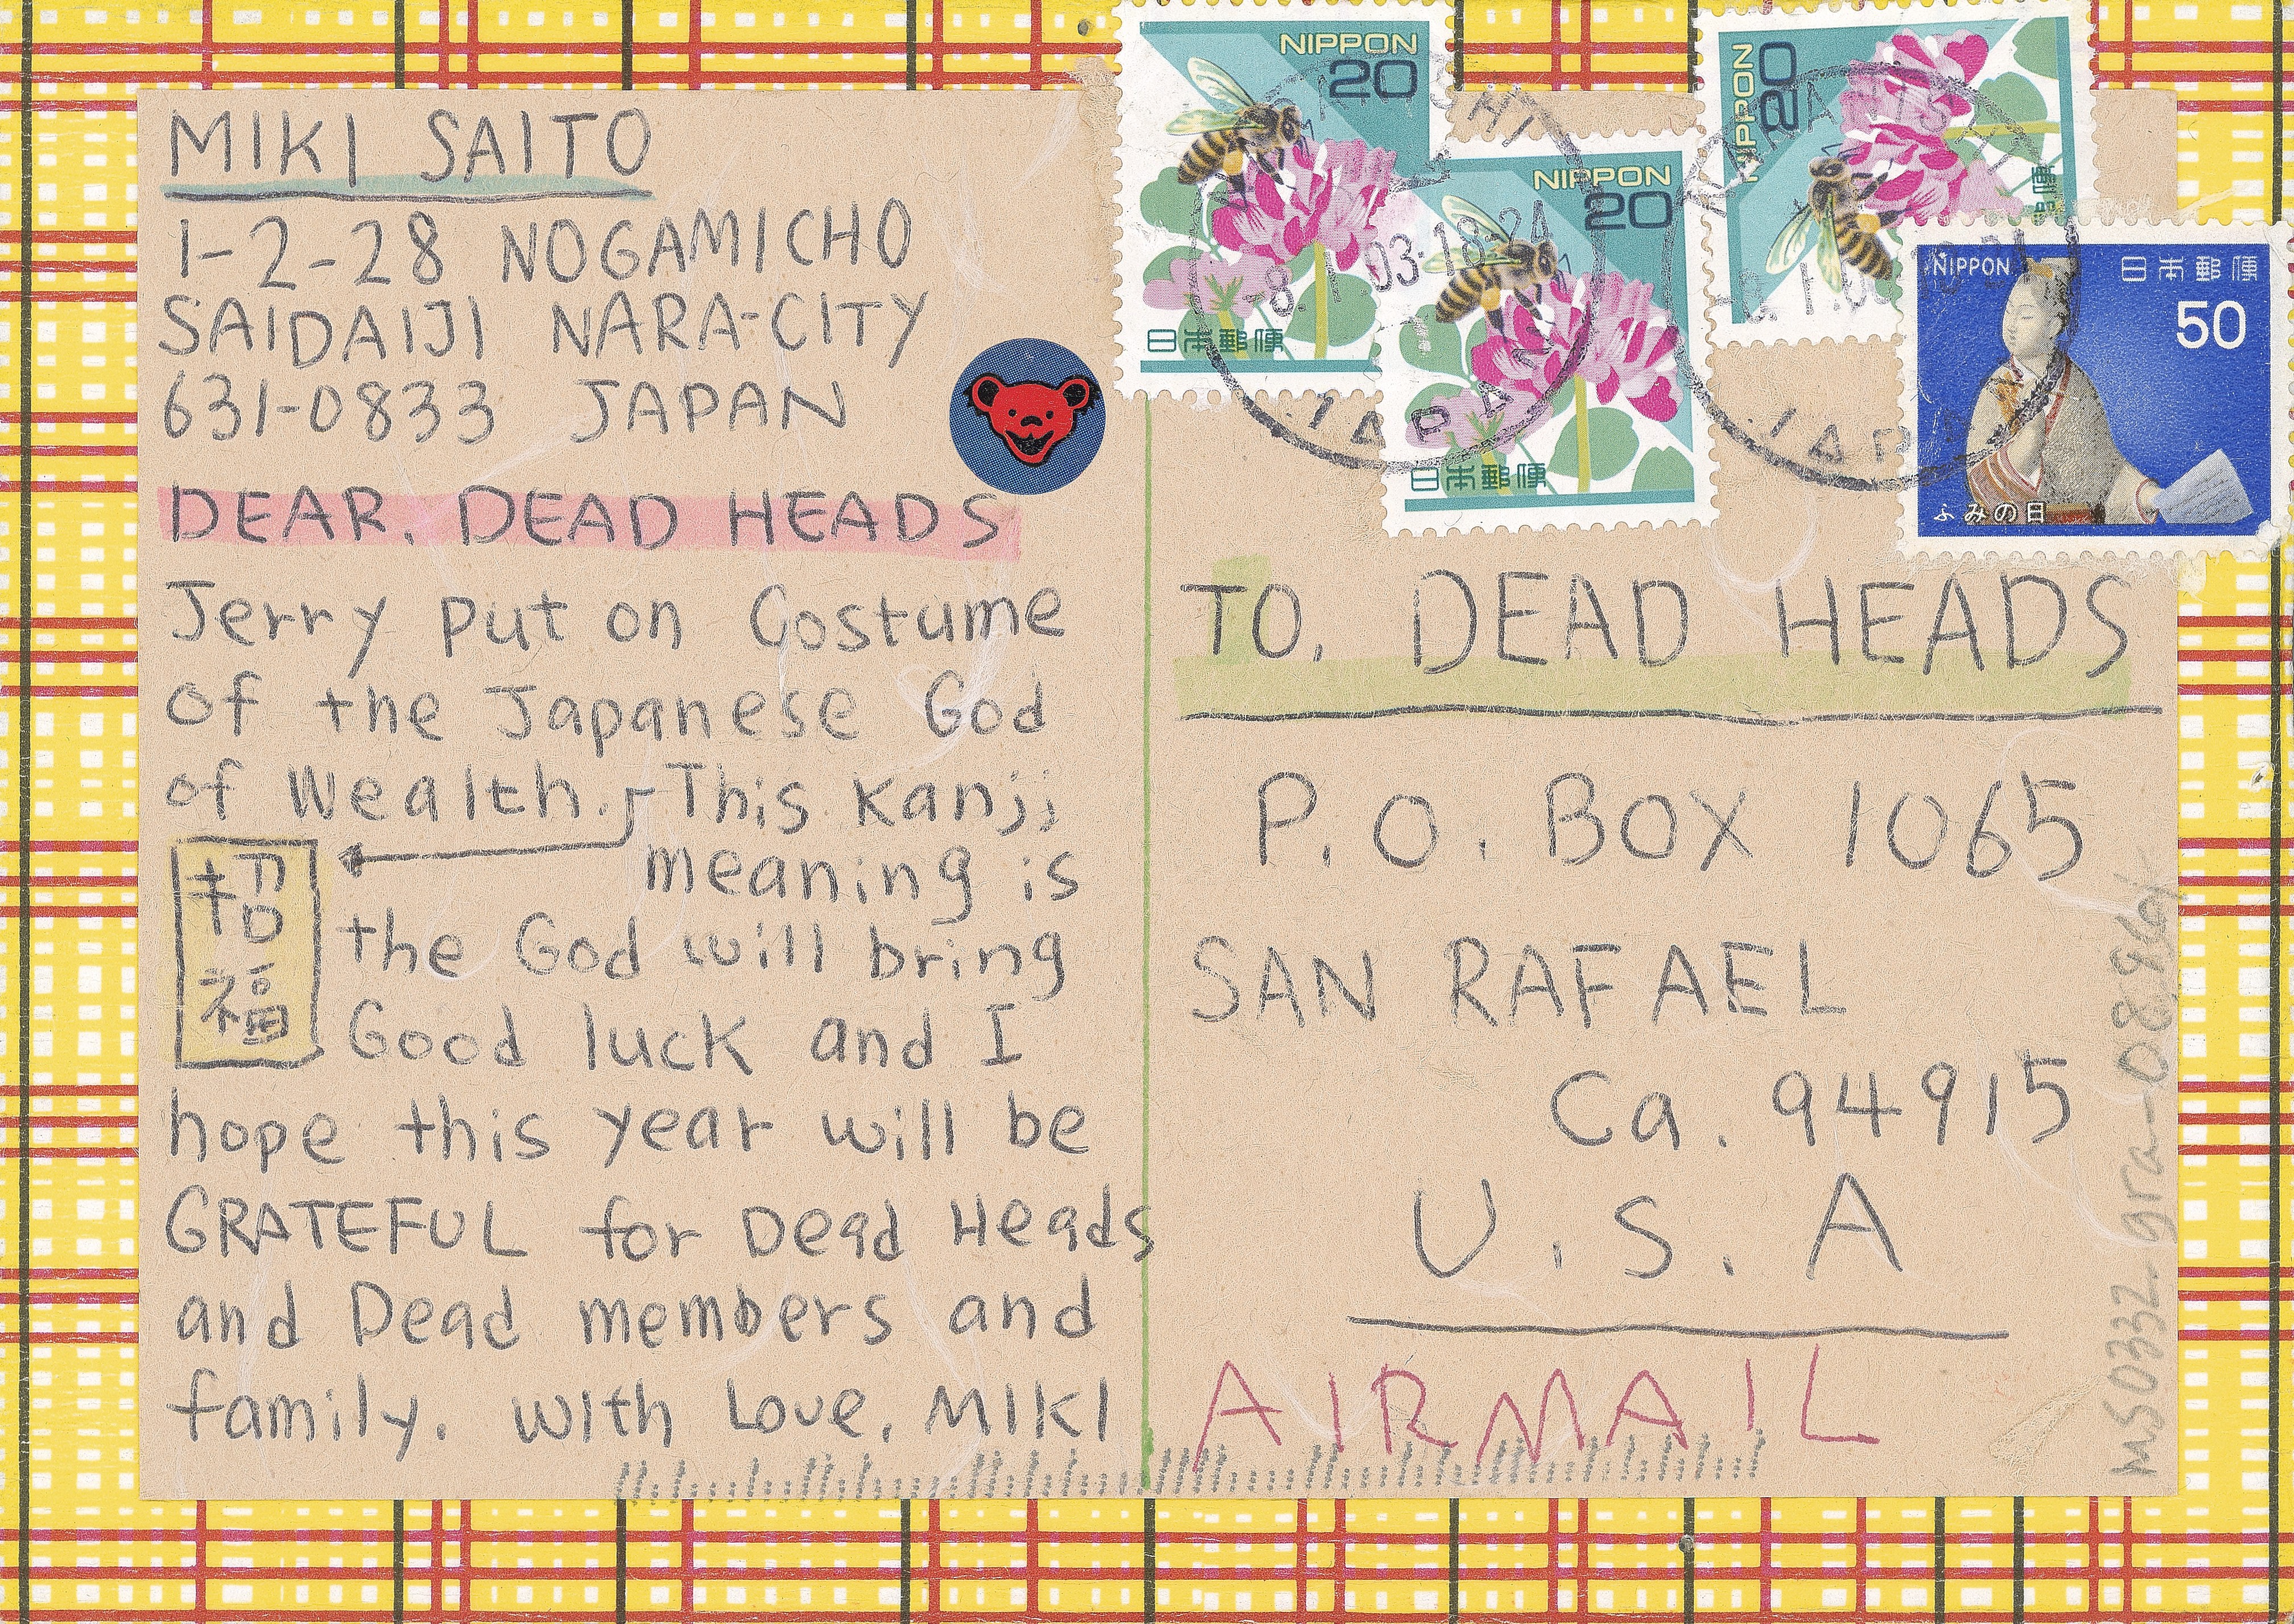 MIKI SAITO
1-2-28 NOGAMICHO
SAIDAIJI NARA-CITY
631-0833 JAPAN
DEAR. DEAD HEADS
Jerry put on Costume
of the Japanese God
of Wealth. This Kanji
meaning is
招福
the God will bring
Good luck and I
hope this year will be
GRATEFUL for Dead Heads
and Dead members and
family. With Love, MIKI
NIPPON
20
日本郵便
NIPPON
20
日本郵便
NIPPON
20
日本郵便
NIPPON 日本郵便
50
ふみの日
03·18-24
JAPAN
TO. DEAD HEADS
P.O. BOX 1065
SAN RAFAEL
Ca. 94915
U.S.A
AIRMAIL